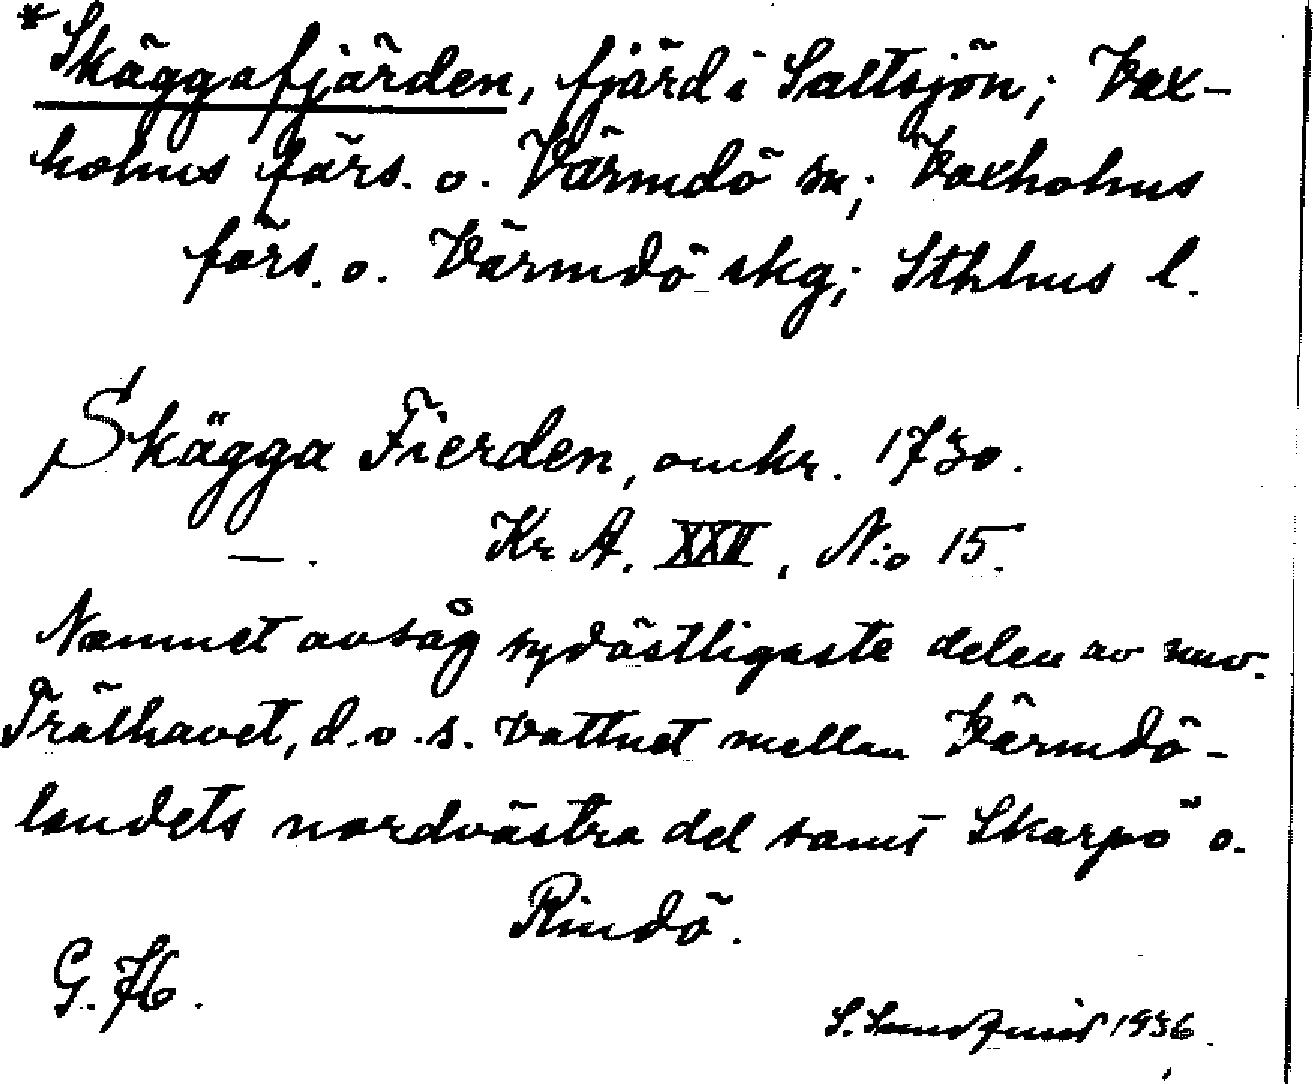 *Skäggafjärden, fjärd i Saltsjön; Vax-
holms förs. o. Värmdö sn; Vaxholms
förs. o. Värmdö skg; Sthlms l.
Skägga Fierden, omkr. 1730.
—. Kr A. XXII, N:o 15.
Namnet avsåg sydöstligaste delen av nuv.
Trälhavet, d.v.s. vattnet mellan Värmdö-
landets nordvästra del samt Skarpö o.
Rindö.
G. H.
S. Lundqvist 1936.